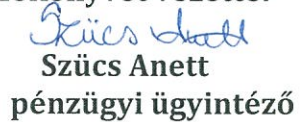 Szücs Anett
Szücs Anett
pénzügyi ügyintéző